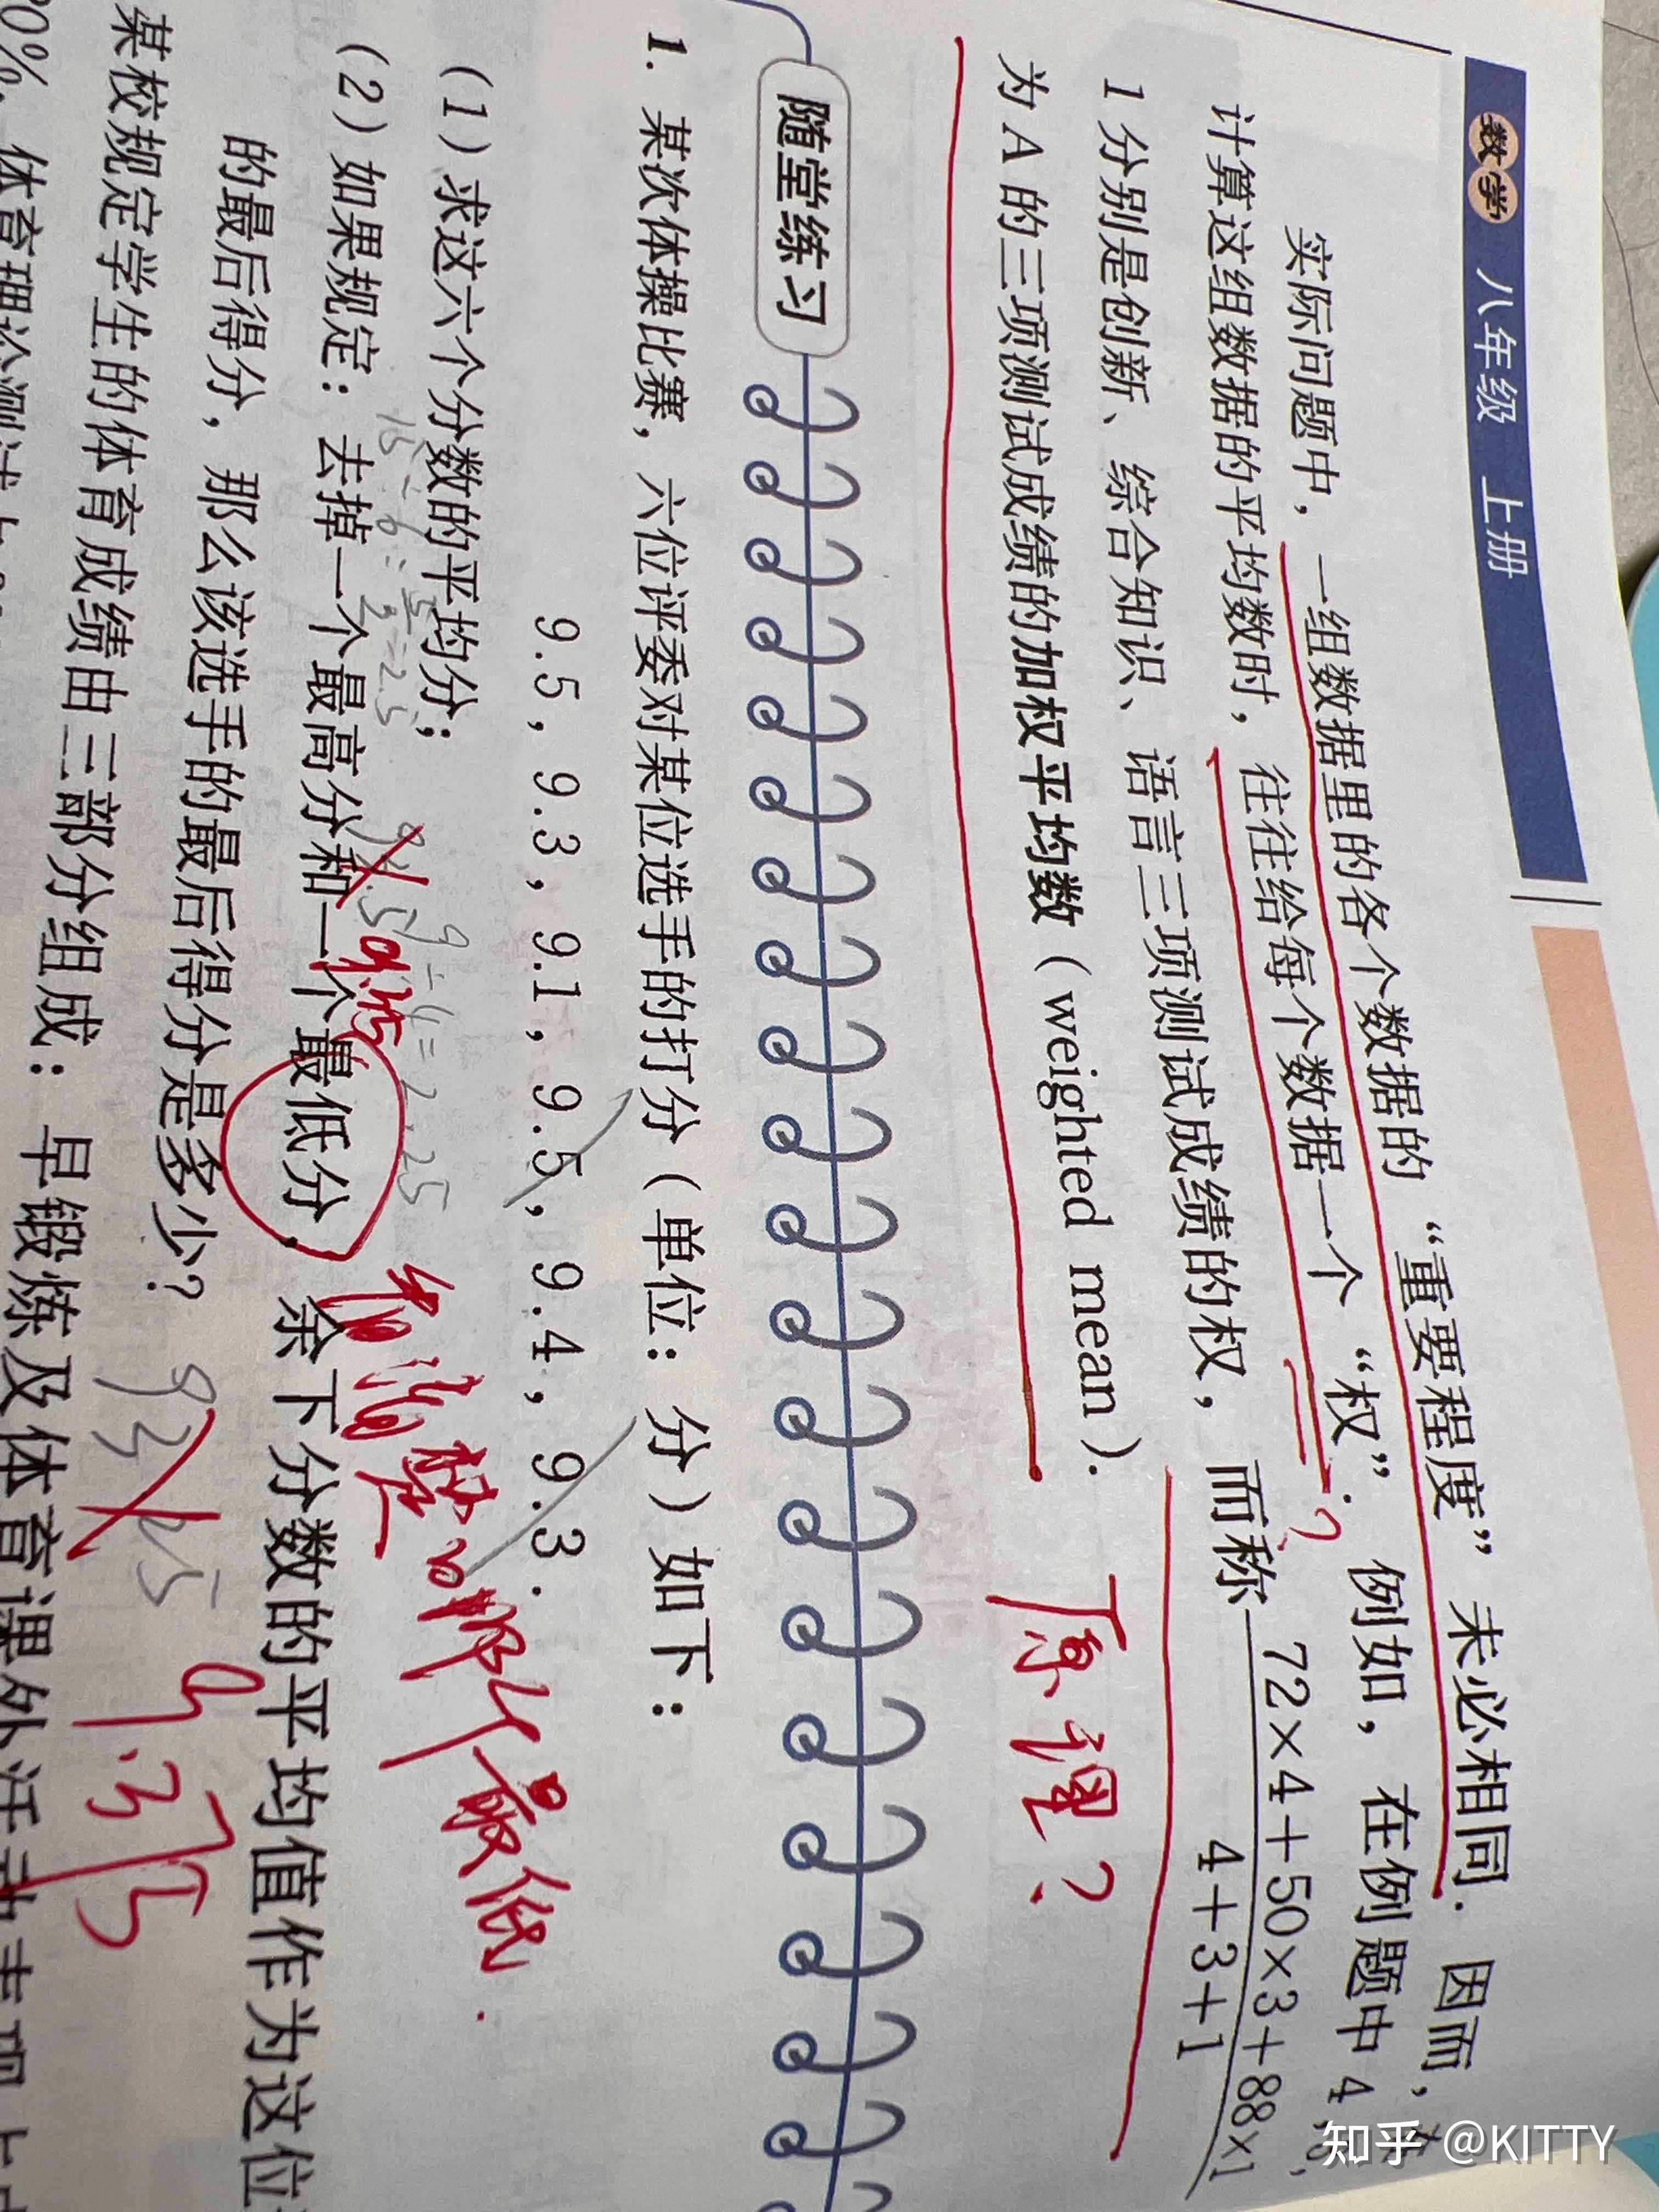 数学 八年级 上册
实际问题中，一组数据里的各个数据的“重要程度”未必相同. 因而，在
计算这组数据的平均数时，往往给每个数据一个“权”. 例如，在例题中 4，3，
1 分别是创新、综合知识、语言三项测试成绩的权，而称 72×4+50×3+88×1
4+3+1
为 A 的三项测试成绩的加权平均数（weighted mean）.
？
原理？
随堂练习
1. 某次体操比赛，六位评委对某位选手的打分（单位：分）如下：
9.5，9.3，9.1，9.5，9.4，9.3.
（1）求这六个分数的平均分；
（2）如果规定：去掉一个最高分和一个最低分，余下分数的平均值作为这位
的最后得分，那么该选手的最后得分是多少？
9.375
看清楚哪个最低.
某校规定学生的体育成绩由三部分组成：早锻炼及体育课外活动表现占
20%，体育理论测试占
知乎 @KITTY